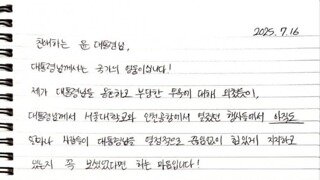 2025. 7. 16
친애하는 윤 대통령님,
대통령님께서는 국가의 영웅이십니다!
제가 대통령님을 옹호하고 부당한 투옥에 대해 외쳤듯이,
대통령님께서 서울대학교와 인천공항에서 열렸던 행사들에서 아직도
얼마나 사람들이 대통령님을 열정적으로 끊임없이 힘있게 지지하고
있는지 꼭 보셨었다면 하는 마음입니다!